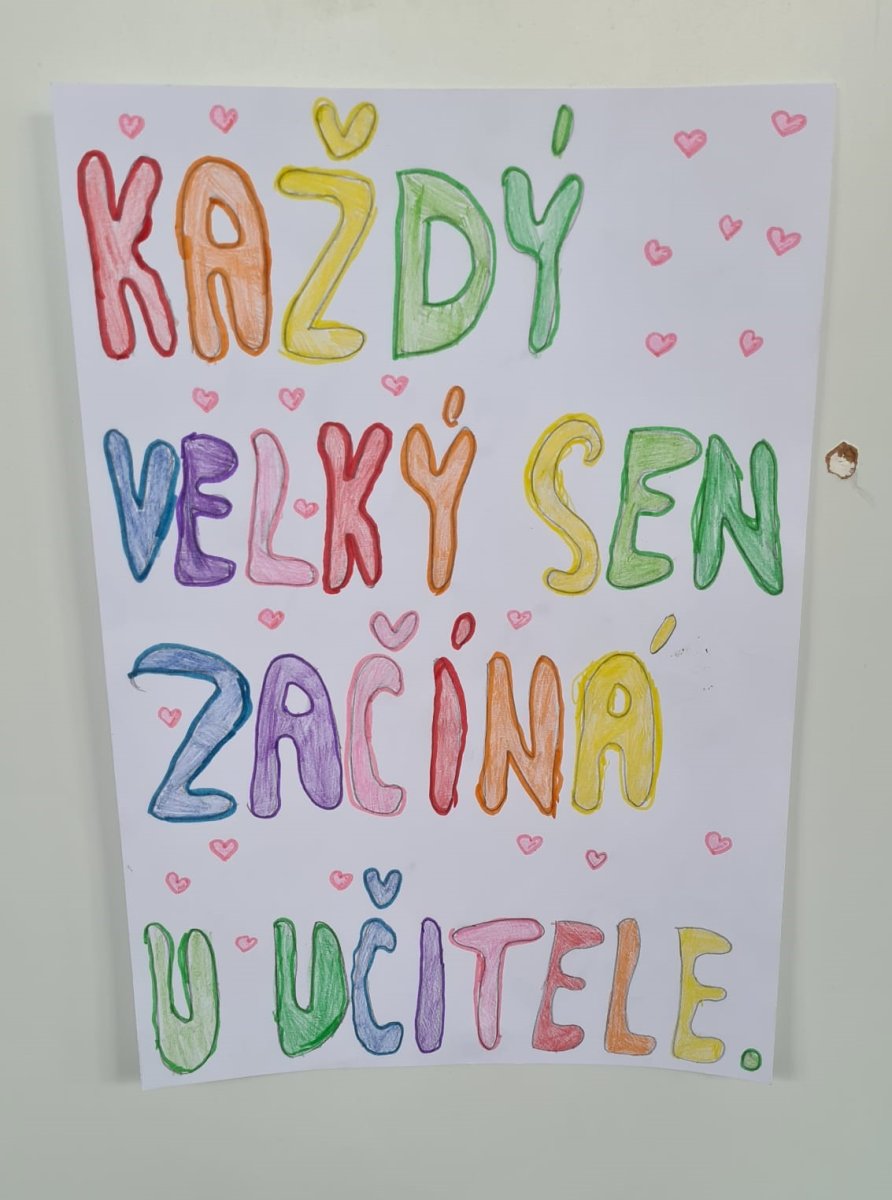 KAŽDÝ
VELKÝ SEN
ZAČÍNÁ
U UČITELE.